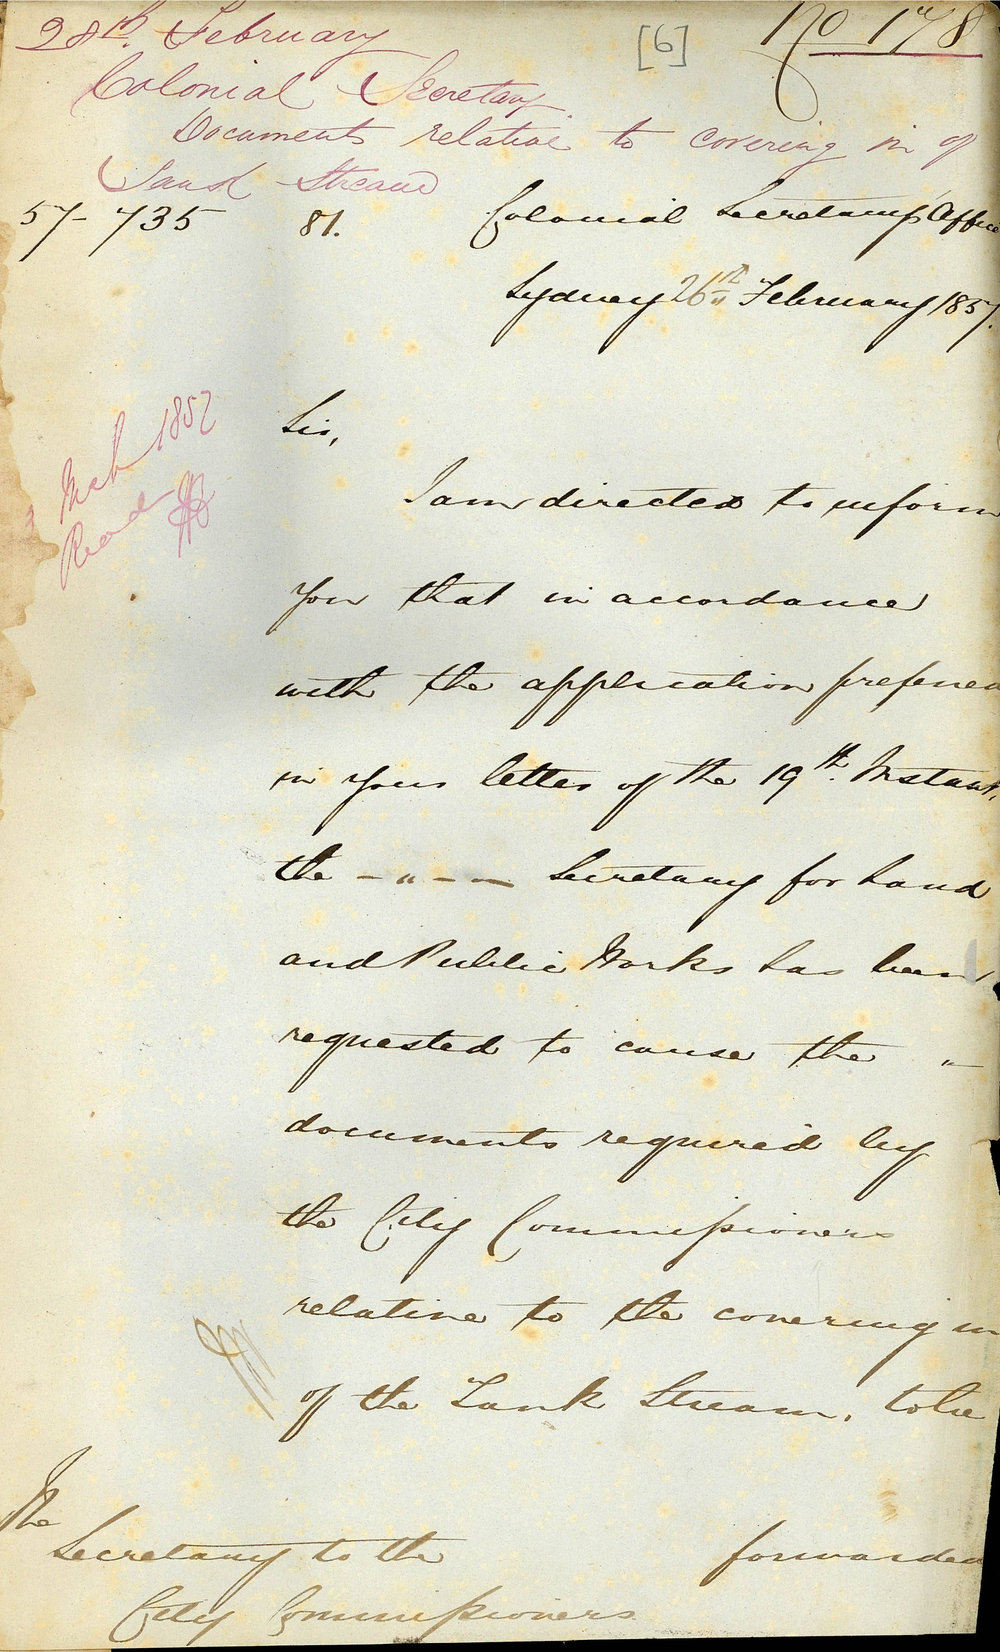 28th. February
[6]
No 178
Colonial Secretary
Documents relative to covering in of
Tank Stream
57-735
81.
Colonial Secretarys Office
Sydney 26th February 1857.
Mch 1857
Read
Sir,
I am directed to inform
you that in accordance
with the application preferred
in your letter of the 19th. Instant,
the - " - - Secretary for Land
and Public Works has been
requested to cause the "-
documents required by
the City Commissioners
relative to the covering in
of the Tank Stream, to be
forwarded
The
Secretary to the
City Commissioners